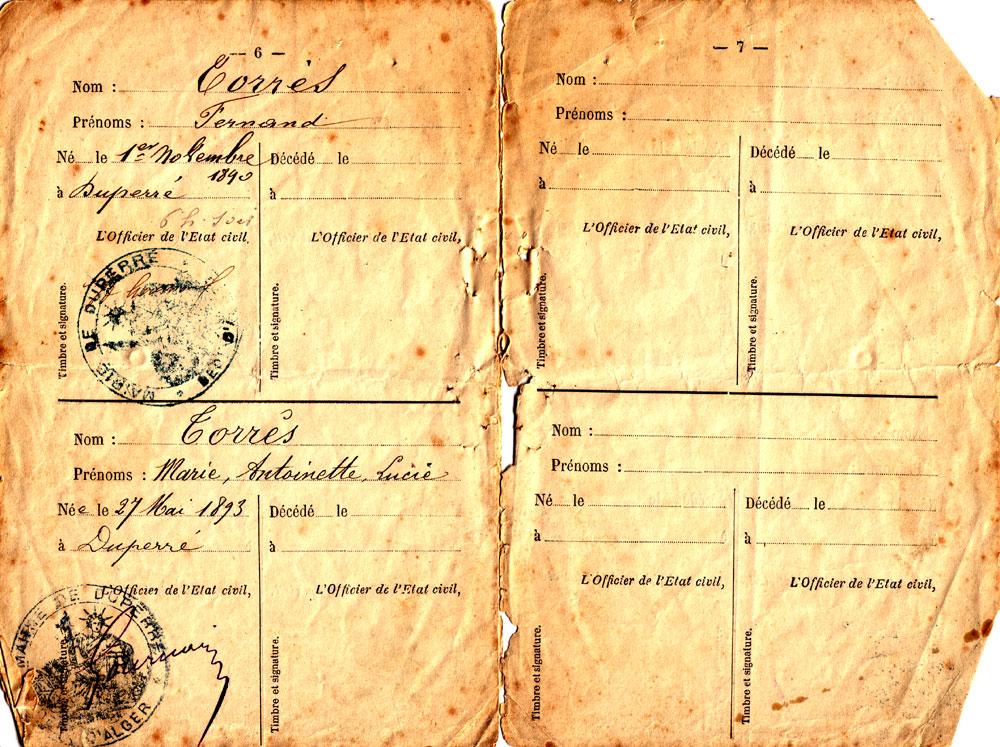 — 6 —
Nom : Torrès
Prénoms : Fernand
Né le 1er Novembre 1890
à Duperré
Décédé le
à
L'Officier de l'Etat civil,
L'Officier de l'Etat civil,
Timbre et signature.
Timbre et signature.
MAIRIE DE DUPERRÉ
Nom : Torrès
Prénoms : Marie, Antoinette, Lucie
Née le 27 Mai 1893
à Duperré
Décédé le
à
L'Officier de l'Etat civil,
L'Officier de l'Etat civil,
Timbre et signature.
Timbre et signature.
MAIRIE DE DUPERRÉ
D'ALGER
— 7 —
Nom :
Prénoms :
Né le
à
Décédé le
à
L'Officier de l'Etat civil,
L'Officier de l'Etat civil,
Timbre et signature.
Timbre et signature.
Nom :
Prénoms :
Né le
à
Décédé le
à
L'Officier de l'Etat civil,
L'Officier de l'Etat civil,
Timbre et signature.
Timbre et signature.